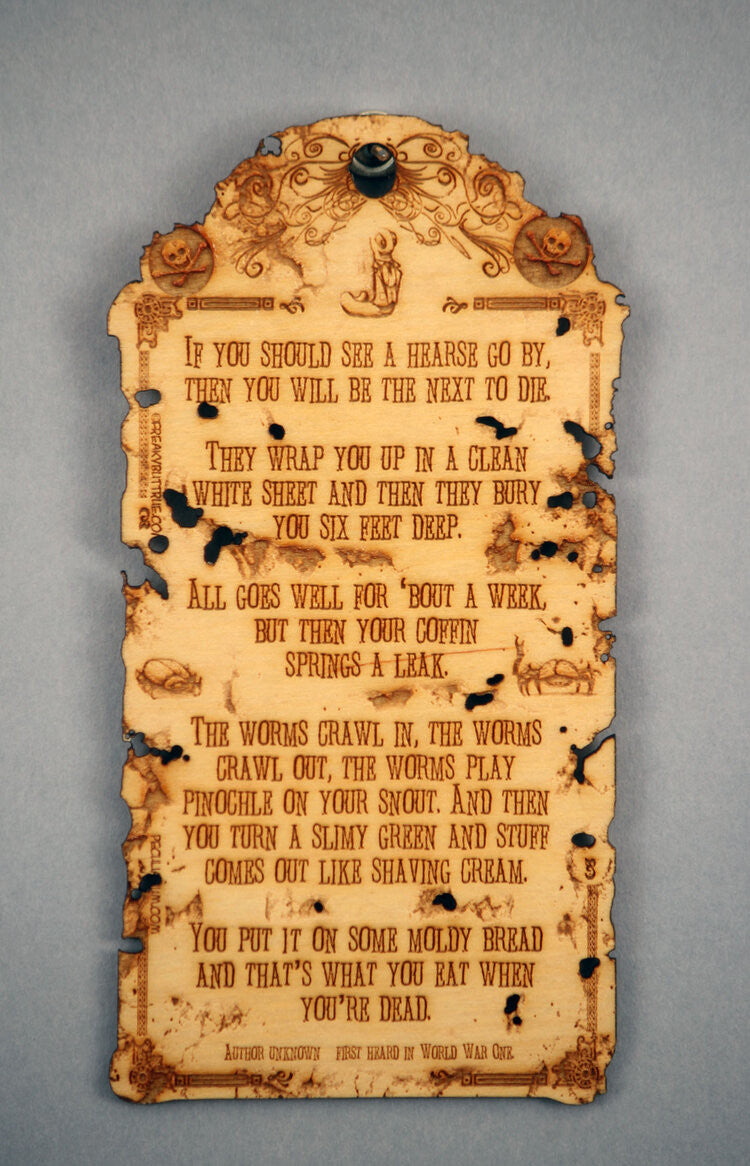 If you should see a hearse go by,
then you will be the next to die.
They wrap you up in a clean
white sheet and then they bury
you six feet deep.
All goes well for ‘bout a week,
but then your coffin
springs a leak.
The worms crawl in, the worms
crawl out, the worms play
pinochle on your snout. And then
you turn a slimy green and stuff
comes out like shaving cream.
You put it on some moldy bread
and that's what you eat when
you're dead.
Author unknown first heard in World War One